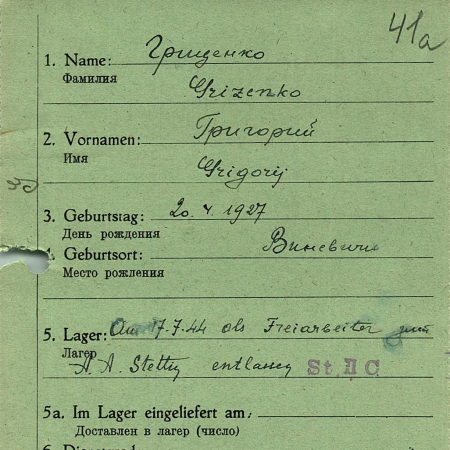 41a
1. Name: Грищенко
Фамилия
Grizenko
2. Vornamen: Григорий
Имя
Grigorij
3. Geburtstag: 20. 4. 1927
День рождения
4. Geburtsort: Виневичи
Место рождения
5. Lager: Am 17.7.44 als Freiarbeiter zum
Лагер
A. A. Stettin entlassen St. II C
5a. Im Lager eingeliefert am:
Доставлен в лагер (число)